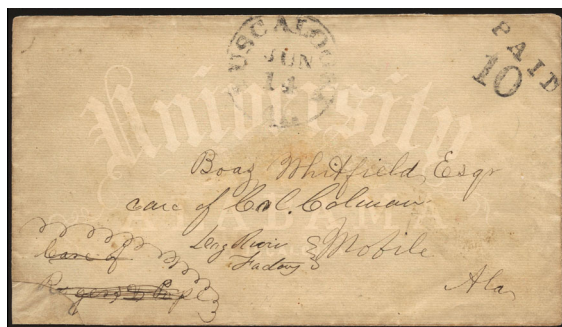 TUSCALOOSA
JUN
14
PAID
10
University
ALABAMA
Boaz Whitfield, Esqr
care of Col. Colman
Dog River
Factory
& Mobile
Ala
Care of